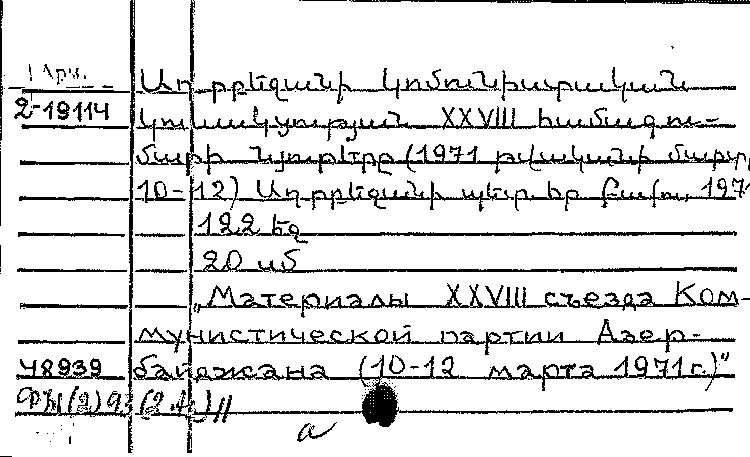 Арм.
Ադրբեջանի կոմունիստական
2-19114 կուսակցության XXVIII համագու-
մարի նյութերը (1971 թվականի մարտի
10-12) Ադրբեջանի պետ. հր. Բաքու, 1971
122 եջ
20 սմ
„Материалы XXVIII съезда Ком-
мунистической партии Азер-
48939 байджана (10-12 марта 1971 г.)“
a